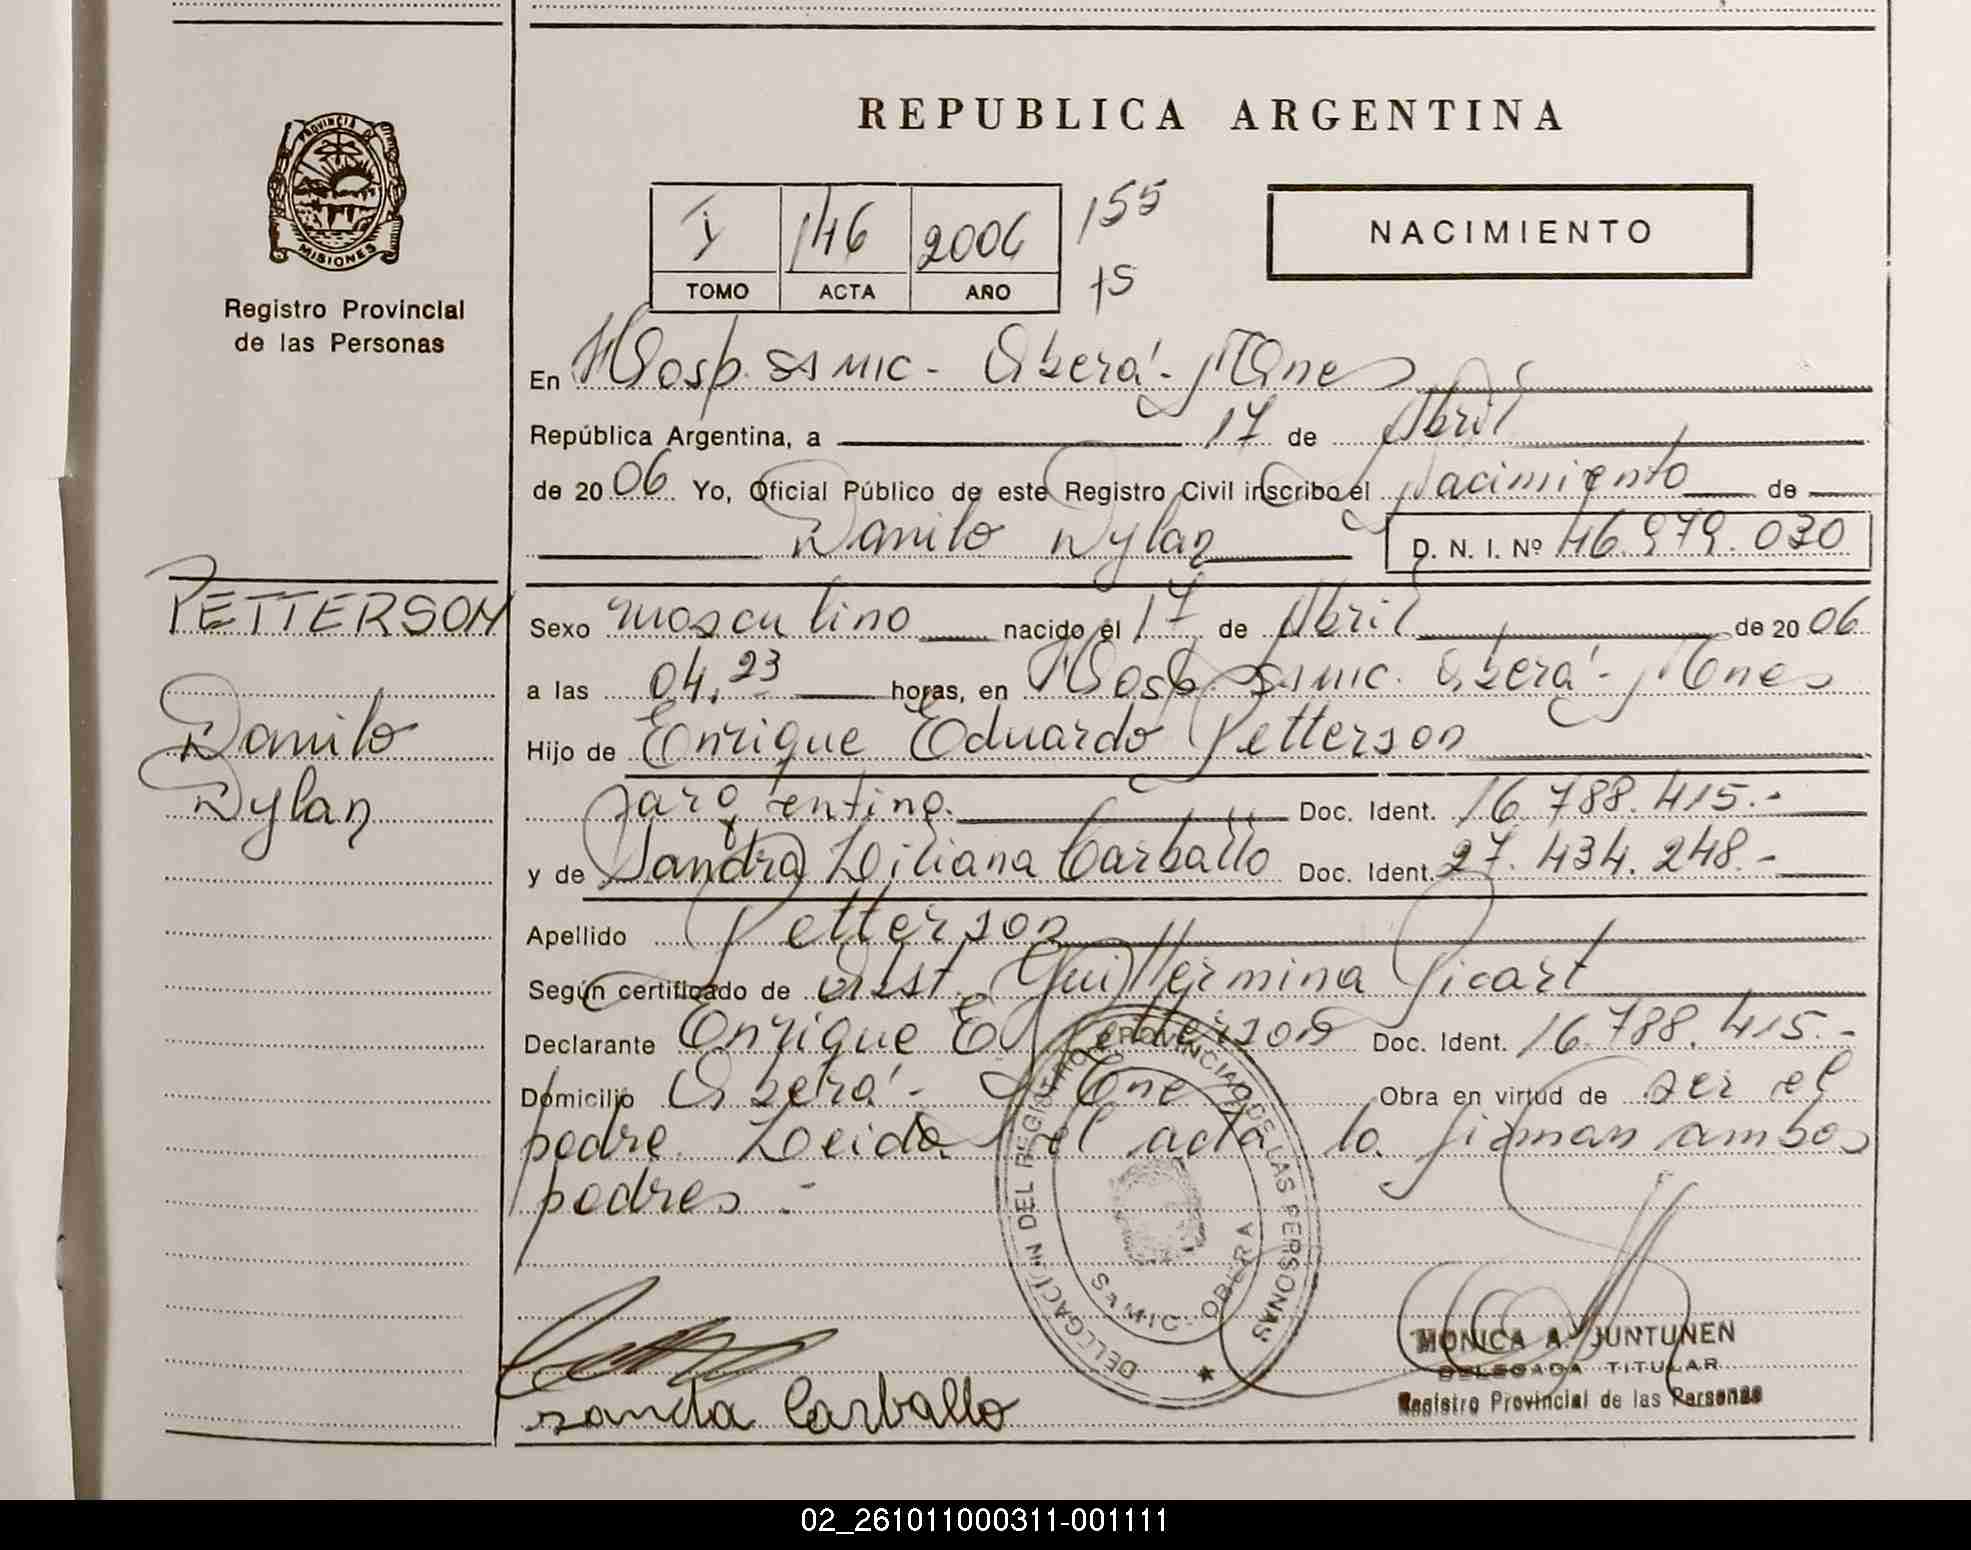 REPUBLICA ARGENTINA
PROVINCIA DE
MISIONES
Registro Provincial
de las Personas
I 146 2006 155
TOMO ACTA AÑO 75
NACIMIENTO
En Hosp. SAMIC - Oberá - Mnes
República Argentina, a 17 de Abril
de 2006 Yo, Oficial Público de este Registro Civil inscribo el Nacimiento de
Danilo Dylan D. N. I. Nº 46.979.030
PETTERSON
Danilo
Dylan
Sexo masculino nacido el 17 de Abril de 2006
a las 04.23 horas, en Hosp. Samic. Oberá - Mnes
Hijo de Enrique Eduardo Petterson
argentino. Doc. Ident. 16.788.415.-
y de Sandra Liliana Carballo Doc. Ident. 27.434.248.-
Apellido Petterson
Según certificado de Obst. Guillermina Picart
Declarante Enrique E. Petterson Doc. Ident. 16.788.415.-
Domicilio Oberá - Mnes Obra en virtud de ser el
padre. Leida el acta la firman ambos
padres -
DELEGACIÓN DEL REGISTRO PROVINCIAL DE LAS PERSONAS
SAMIC - OBERA
sanda Carballo
MONICA A. JUNTUNEN
DELEGADA TITULAR
Registro Provincial de las Personas
02_261011000311-001111